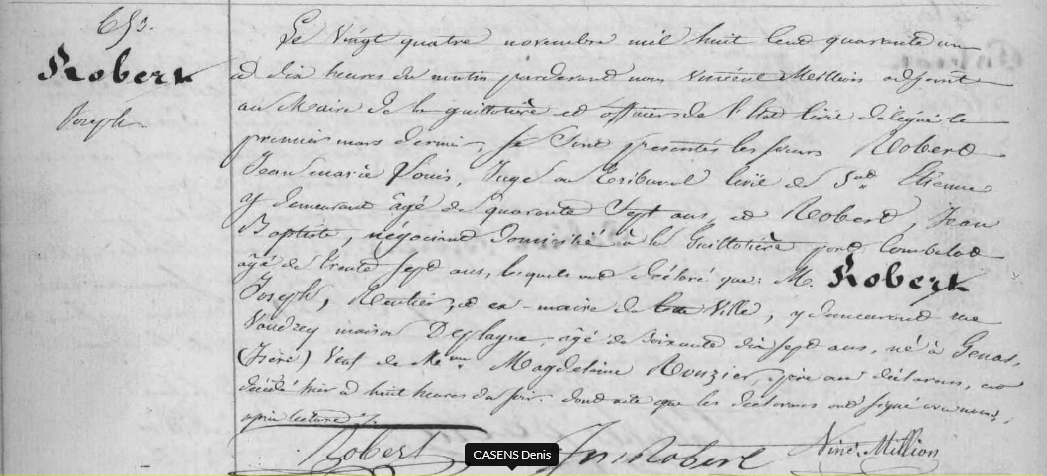 653.
Robert
Joseph
Le vingt quatre novembre mil huit cent quarante un
à dix heures du matin pardevant nous Vincent Million adjoint
au Maire de la guillotière et officier de l'Etat civil délégué le
premier mars dernier, se sont présentés les sieurs Robert
Jean marie Louis, Juge au Tribunal civil de St Etienne
y demeurant âgé de quarante Sept ans, et Robert, Jean
Baptiste, négociant domicilié à la Guillotière
âgé de trente sept ans, lesquels ont déclaré que: M. Robert
Joseph, Rentier, et ex-maire de Ville, y demeurant rue
Vaudrey maison Desplagne, âgé de soixante dix sept ans, né à Genas,
(Isère) Veuf de Magdelaine Rouzier, père au déclarans, est
décédé hier à huit heures du soir. dont acte que les déclarans ont signé avec nous,
après lecture
Robert Jn Robert Vinct Million
CASENS Denis